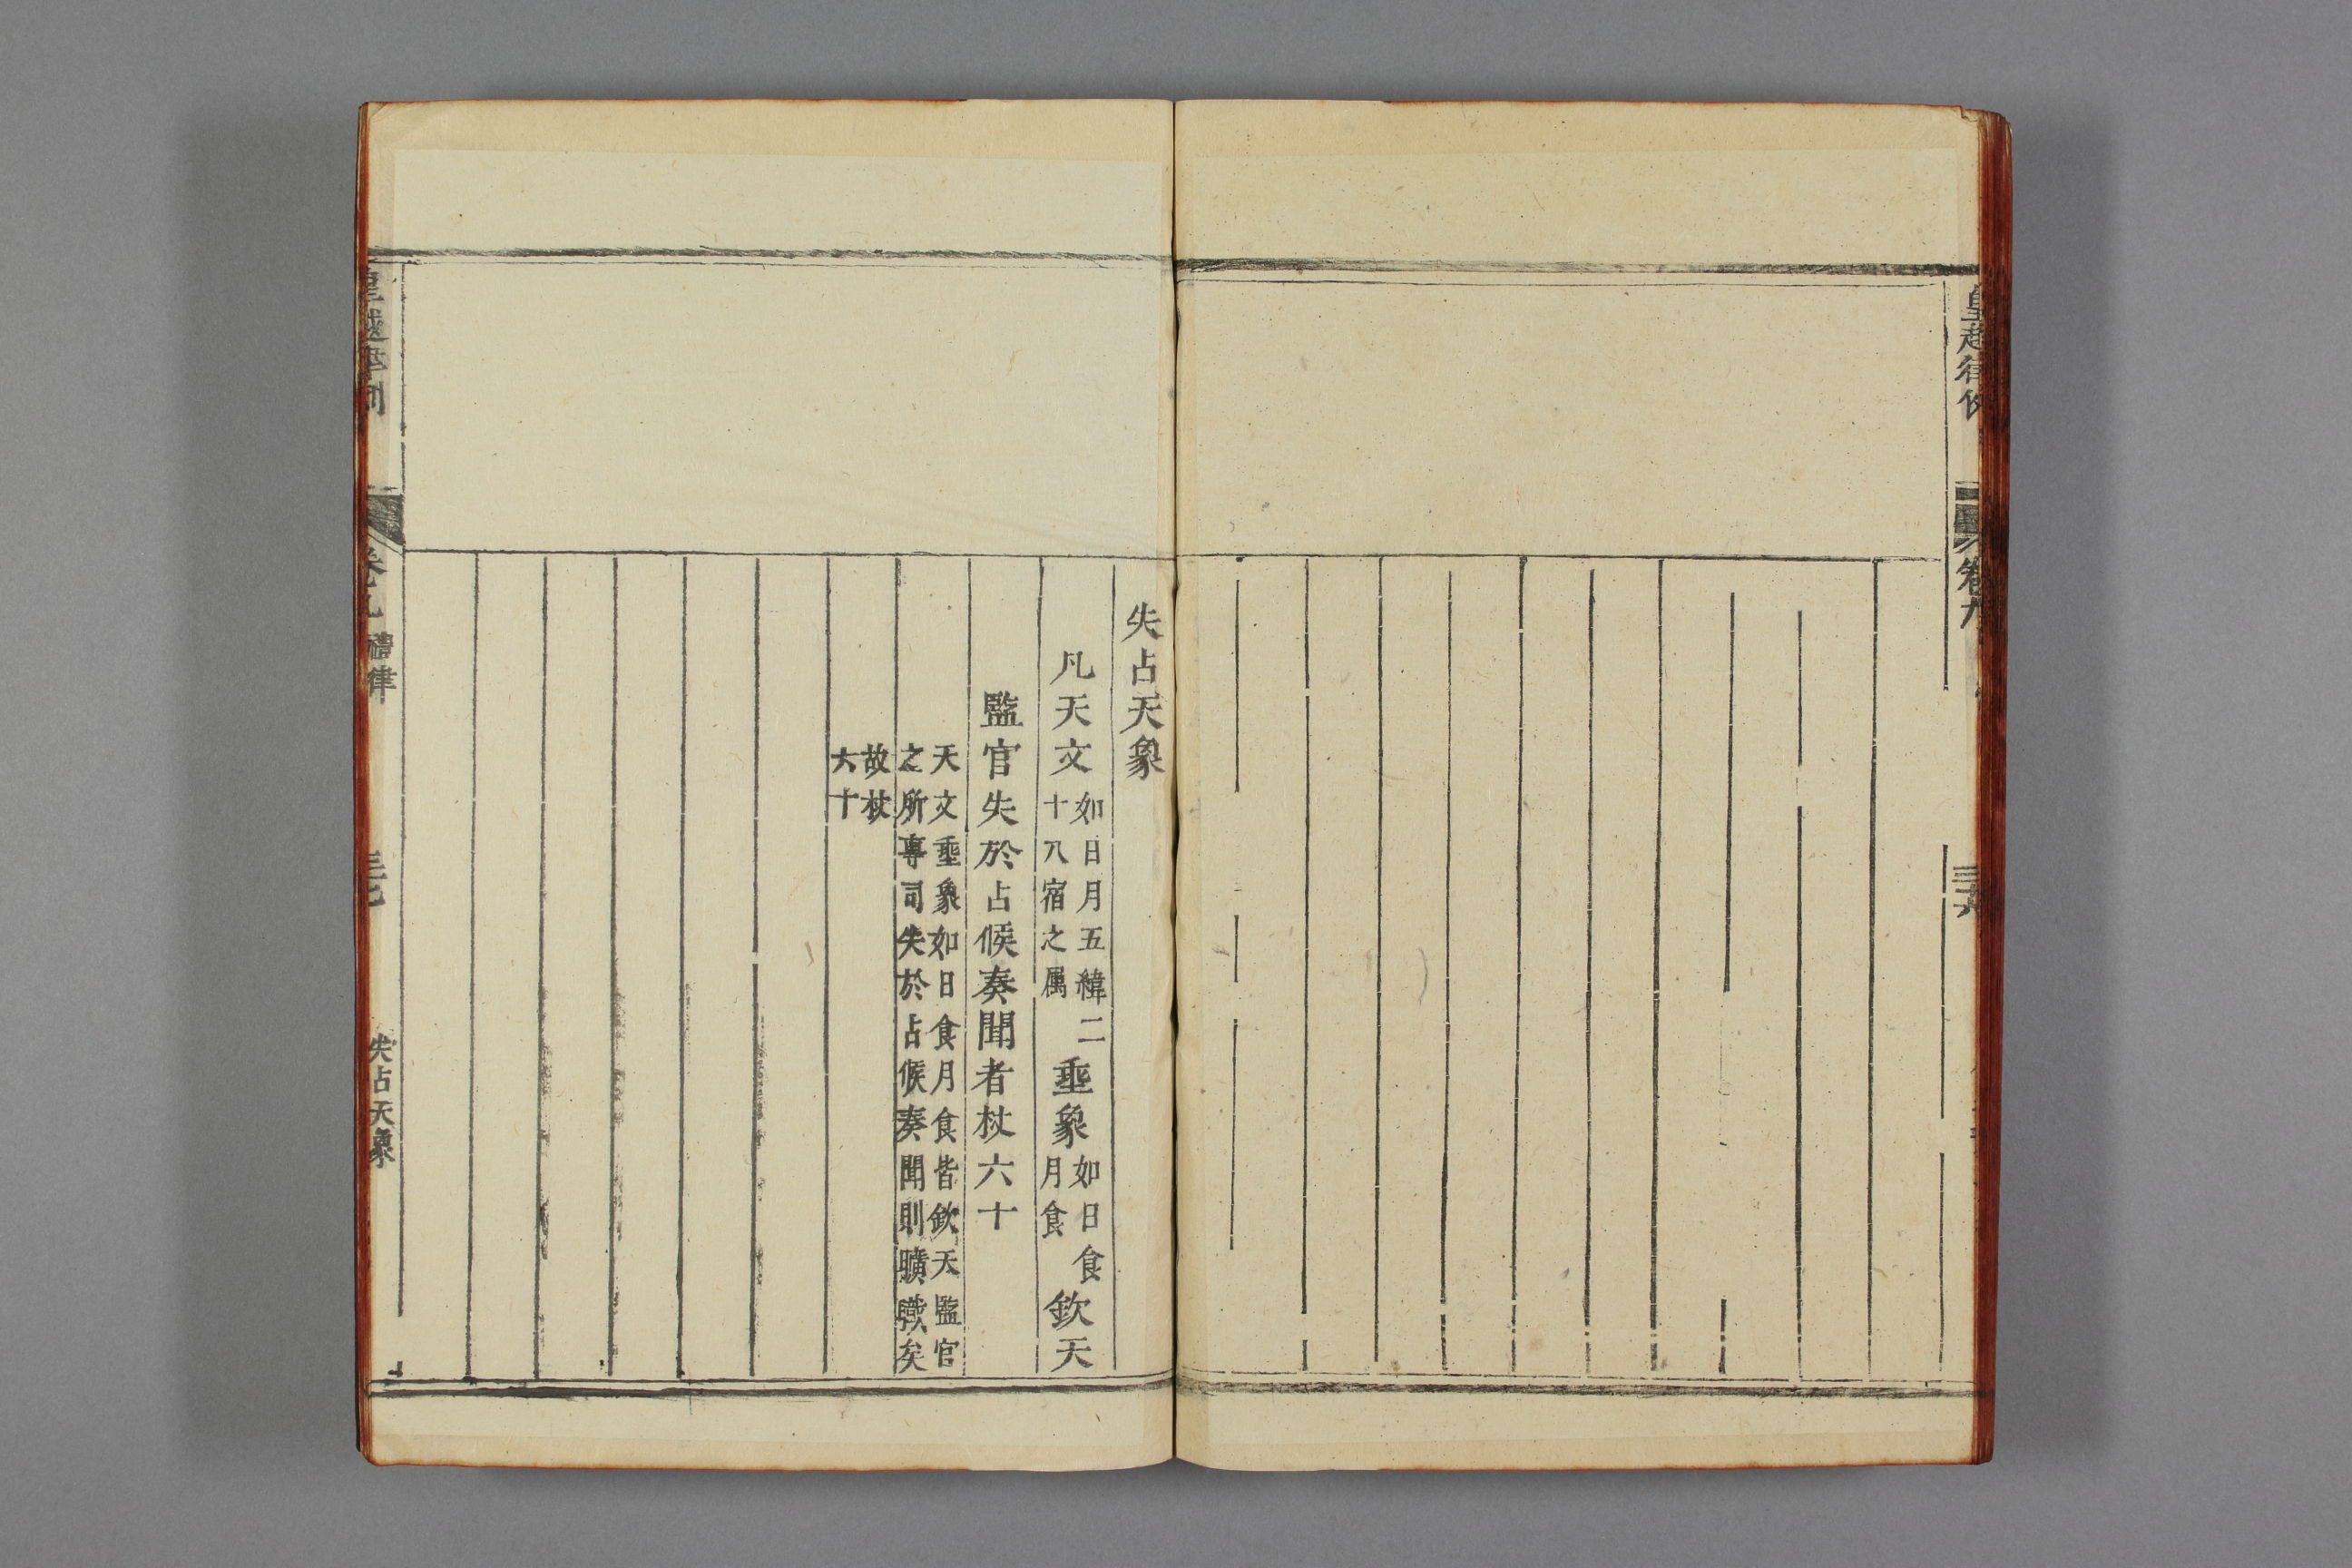 皇越律例
卷九
三十六
失占天象
凡天文如日月五緯二十八宿之属垂象如日食月食欽天
監官失於占候奏聞者杖六十
天文垂象如日食月食皆欽天監官
之所專司失於占候奏聞則曠職矣
故杖
六十
皇越律例
卷九
禮律
三十七
失占天象